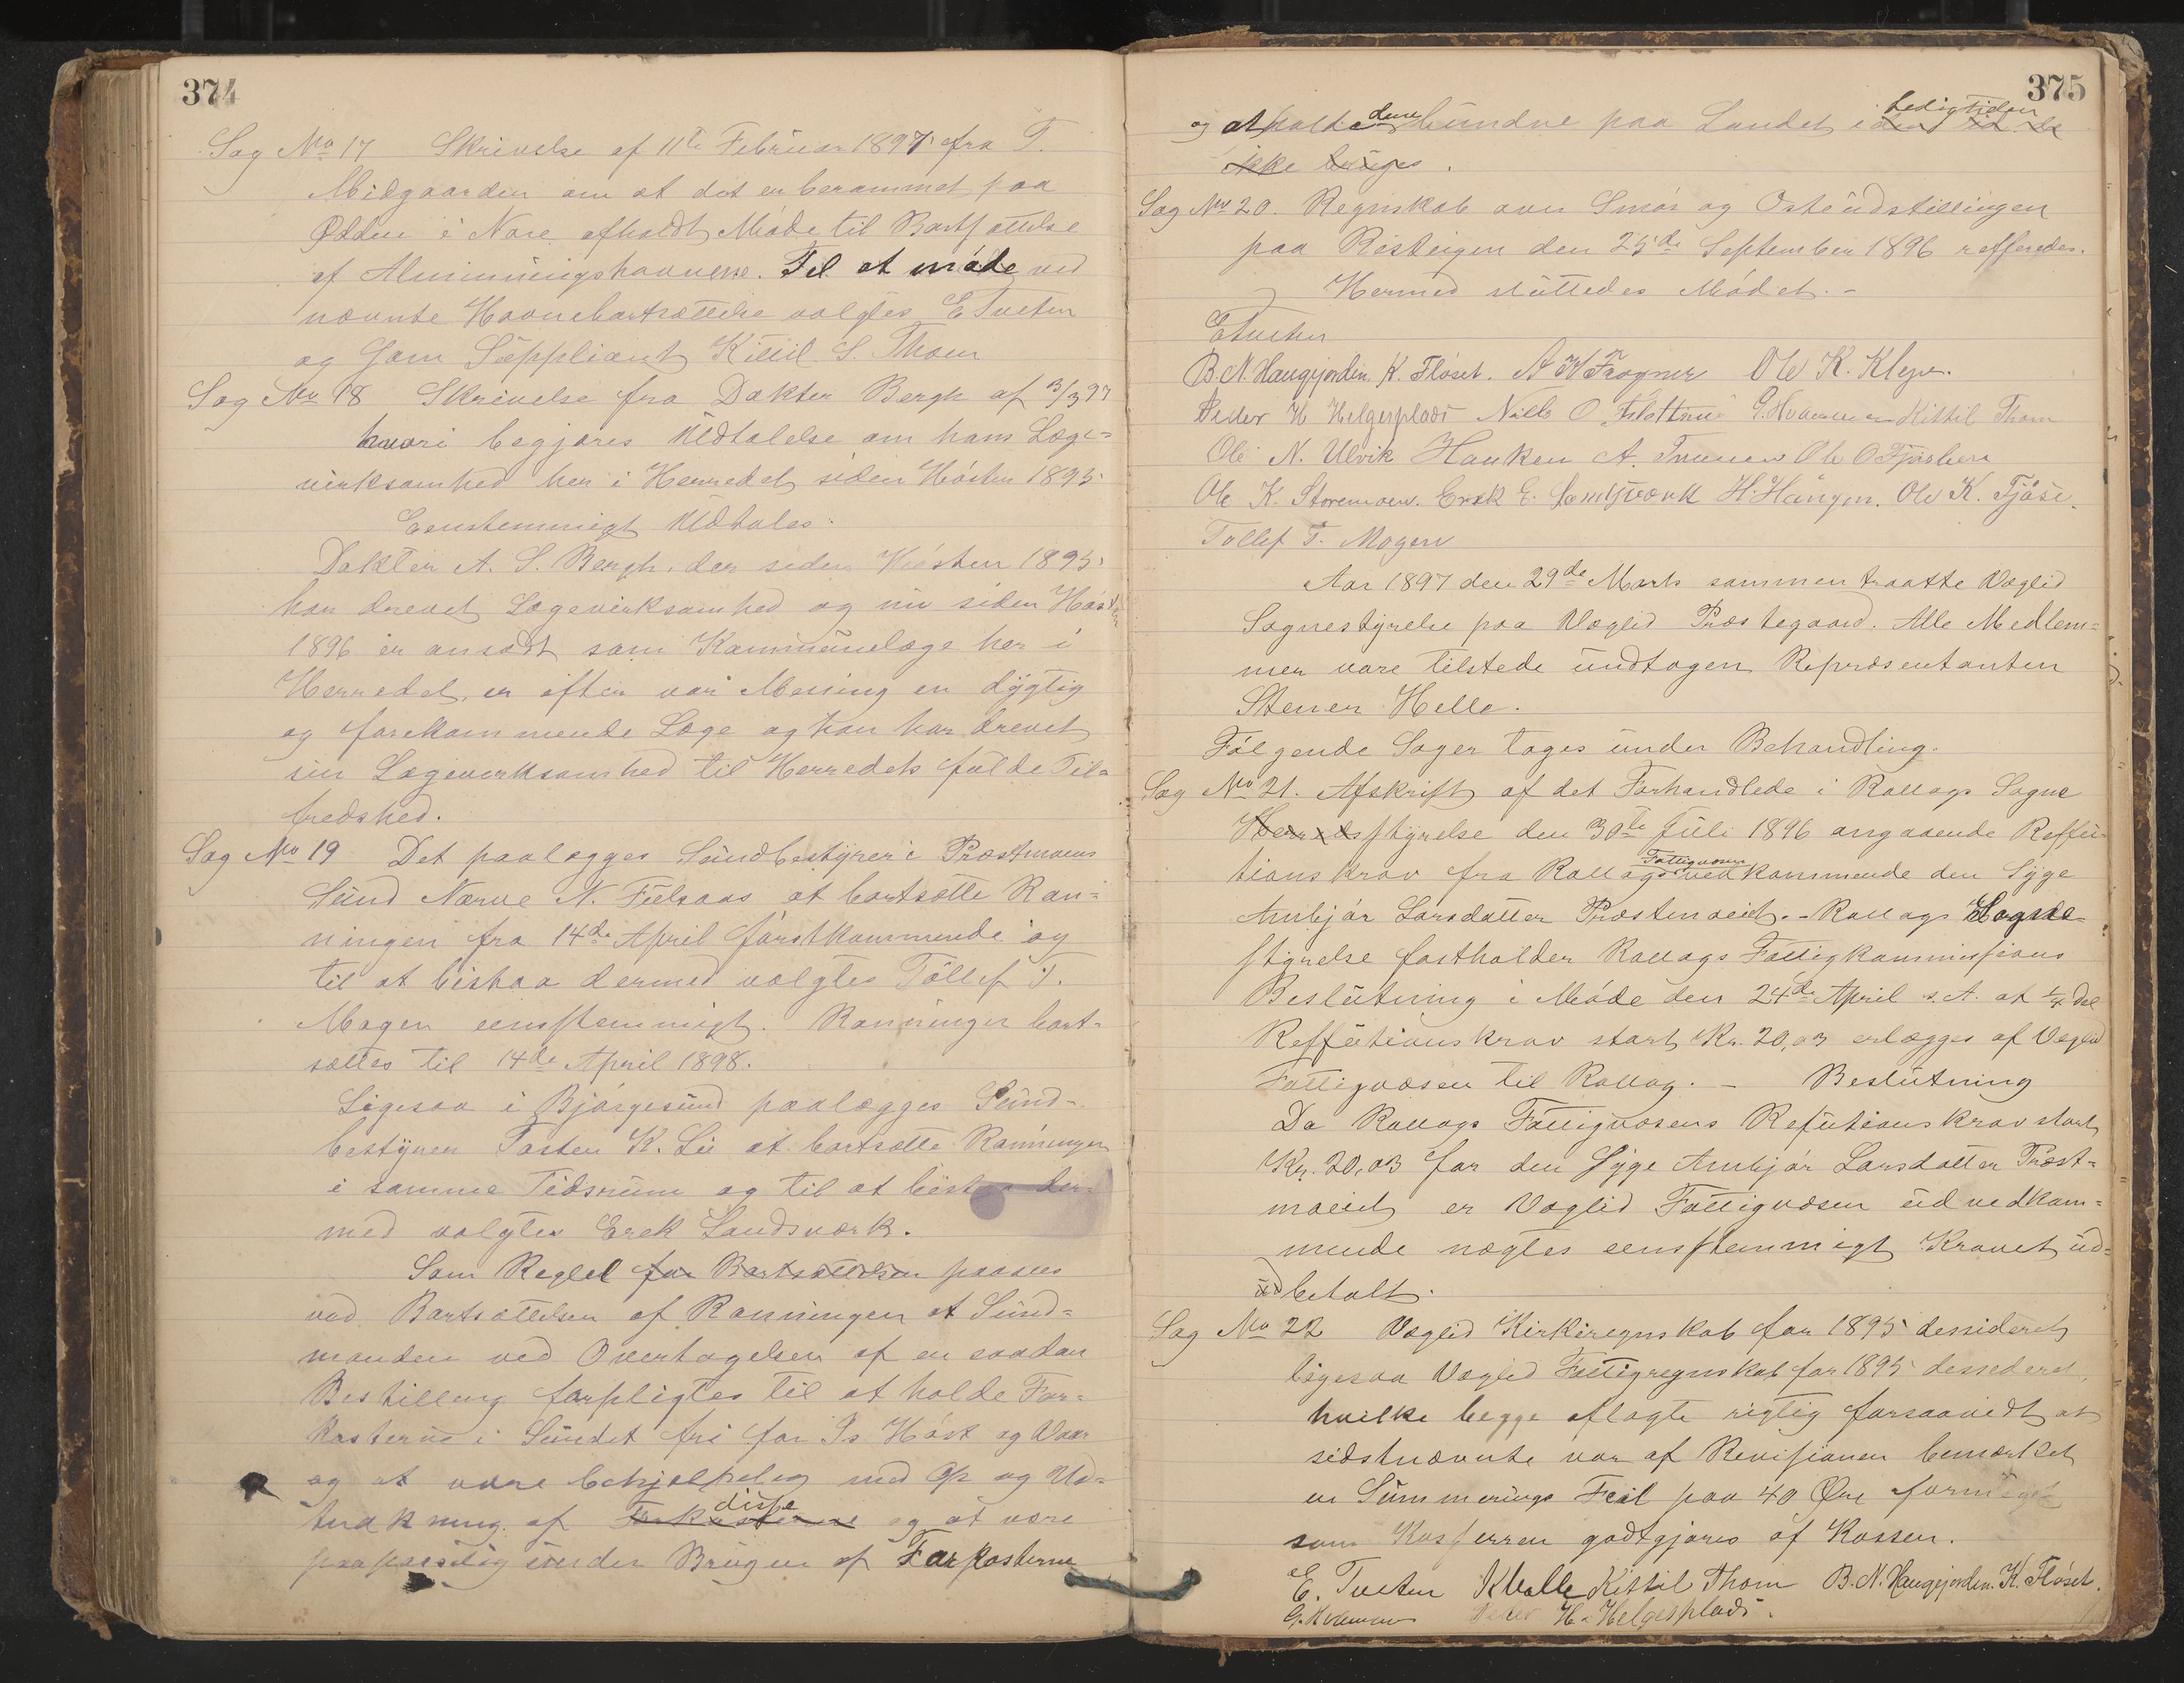 374
Sag No 17 Skrivelse af 11te Februar 1897 fra T.
Midgaarden om at det er berammet paa
Ødden i Nore afholdt Møde til Bortsættelse
af Alminningshavnene. Til at møde ved
nævnte Havnebortsættelse valgtes E Tveten
og som Suppliant Kittil S. Thom
Sag No 18 Skrivelse fra Dokter Bergh af 3/3 97
hvori begjæres Udtalelse om hans Læge=
virksomhed her i Herredet siden Høsten 1895
Eenstemmigt Udtales:
Dokter A. S. Bergh, der siden Høsten 1895
har drevet Lægevirksomhed og nu siden Høsten
1896 er ansadt som Kommunelæge her i
Herredet, er efter vor Mening en dygtig
og forekommende Læge og han har drevet
sin Lægevirksomhed til Herredets fulde Til=
fredshed.
Sag No 19 Det paalægges Sundbestyrer i Præstmoens
Sund Narve N. Fulsaas at bortsætte Ron=
ningen fra 14de April førstkommende og
til at bistaa dermed valgtes Tollef T.
Mogen eenstemmigt. Ronningen bort=
sættes til 14de April 1898.
Ligesaa i Bjørgesund paalægges Sund=
bestyrer Tosten K. Lie at bortsætte Ronningen
i samme Tidsrum og til at bistaa der=
med valgtes Erek Landsværk.
Som Regler for Bortsættelsen paasees
ved Bortsættelsen af Ronningen at Sund=
manden ved Overtagelsen af en saadan
Bestilling forpligtes til at holde Far=
kosterne i Sundet fri for Is Høst og Vaar
og at være behjelpelig med Op og Ud=
disse
trækning af Farkosterne og at være
paapasselig under Brugen af Farkosterne
375
ledigtiden
og at holde dem bundne paa Landet i den tid de
ikke bruges.
Sag No 20. Regnskab over Smør og Osteudstillingen
paa Risteigen den 25de September 1896 refferedes.
Hermed sluttedes Mødet. -
E Tveten
B. N. Haugejorden. K. Fløset. A K Frogner Ole K. Kleven.
Peder H Helgesplads Niels O G. Hvammen Kittil Thom
Ole N. Ulvik Hauken A. Traaen Ole O Fjøsbern
Ole K. Storemoen. Erek E. Landsværk H. Haugen. Ole K. Tjåse.
Tollef T. Mogen
Aar 1897 den 29de Marts sammentraatte Væglid
Sognestyrelse paa Væglid Præstegaard. Alle Medlem=
mer vare tilstede undtagen Repræsentanten
Stener Helle.
Følgende Sager toges under Behandling.
Sag No 21. Afskrift af det Forhandlede i Rollags Sogne
Herredsstyrelse den 30te Juli 1896 angaaende Reffu=
Fattigvæsen
tionskrav fra Rollags vedkommende den Syge
Anbjør Larsdatter Præstmoeiet. - Rollags Sogne=
styrelse fastholder Rollags Fattigkommissions
Beslutning i Møde den 24de April s. A. at 1/4 Del
Reffutionskrav stort Kr. 20,03 erlægges af Væglid
Fattigvæsen til Rollag. - Beslutning
Da Rollags Fattigvæsens Refutionskrav stort
Kr. 20,03 for den Syge Anbjør Larsdatter Præst=
moeiet er Væglid Fattigvæsen uvedkom=
mende nægtes eenstemmigt Kravet ud=
ud betalt.
Sag No 22 Væglid Kirkeregnskab for 1895 desideret
ligesaa Væglid Fattigregnskab for 1895 dessederet,
hvilke begge aflagte rigtig forsaavidt at
sidstnævnte var af Revisionen bemærket
en Summerings Feil paa 40 Øre
som Kasserren godtgjøres af Kassen.
E. Tveten K Valle Kittil Thom B. N. Haugejorden. K. Fløset.
G. Hvammen Peder H. Helgesplads.